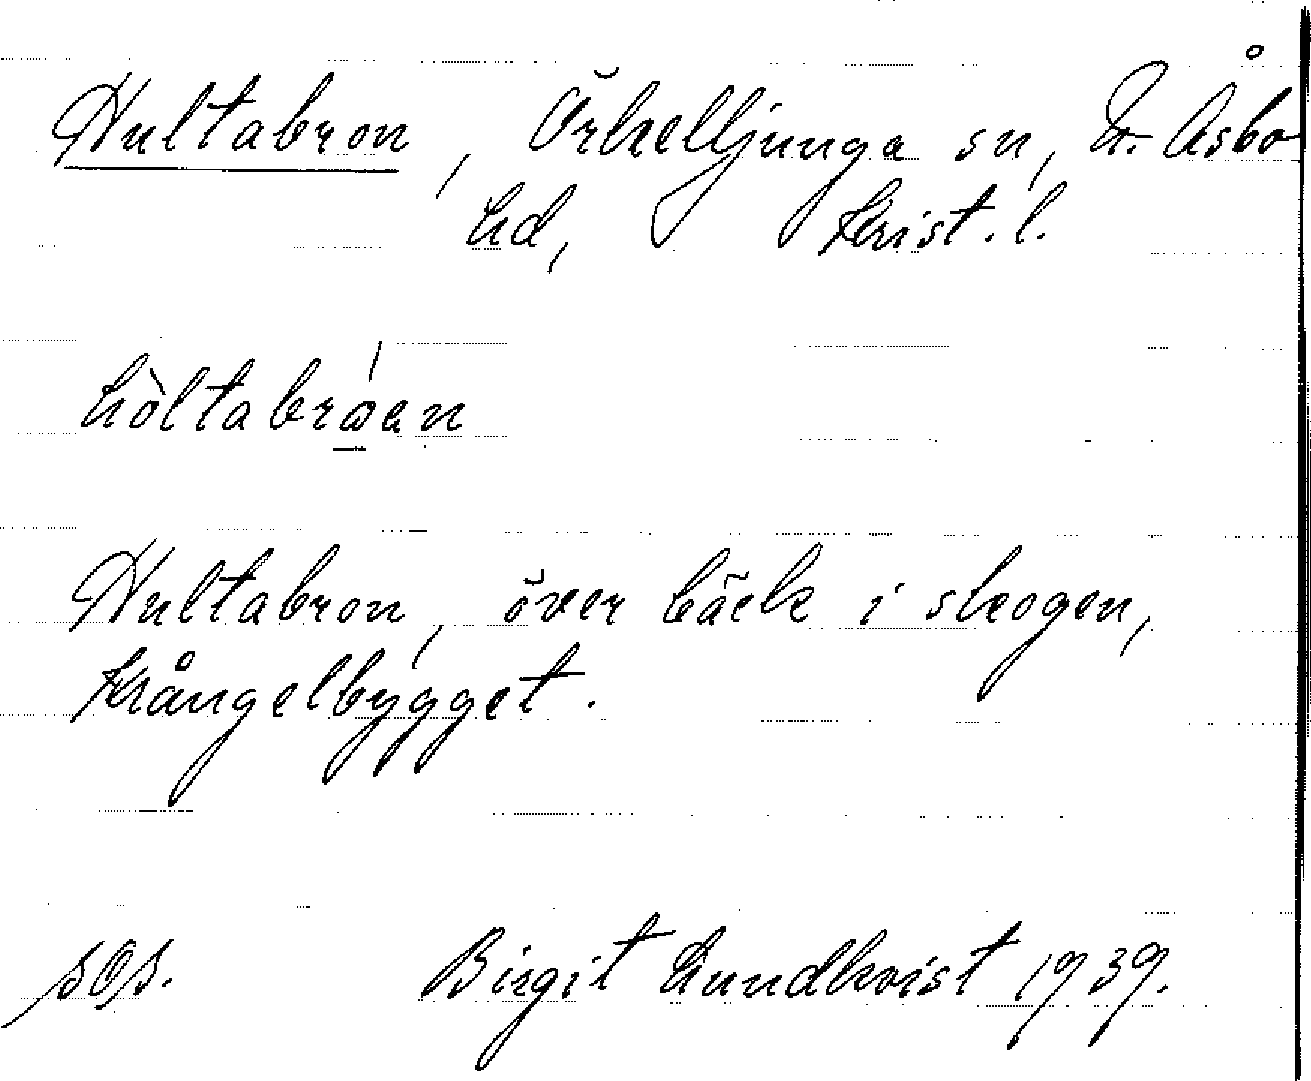 Hultabron, Örkelljunga sn, N. Åsbo
hd, Krist. l.
hòltabróen
Hultabron, över bäck i skogen,
Krångelbygget.
sOs. Birgit Lundkvist 1939.